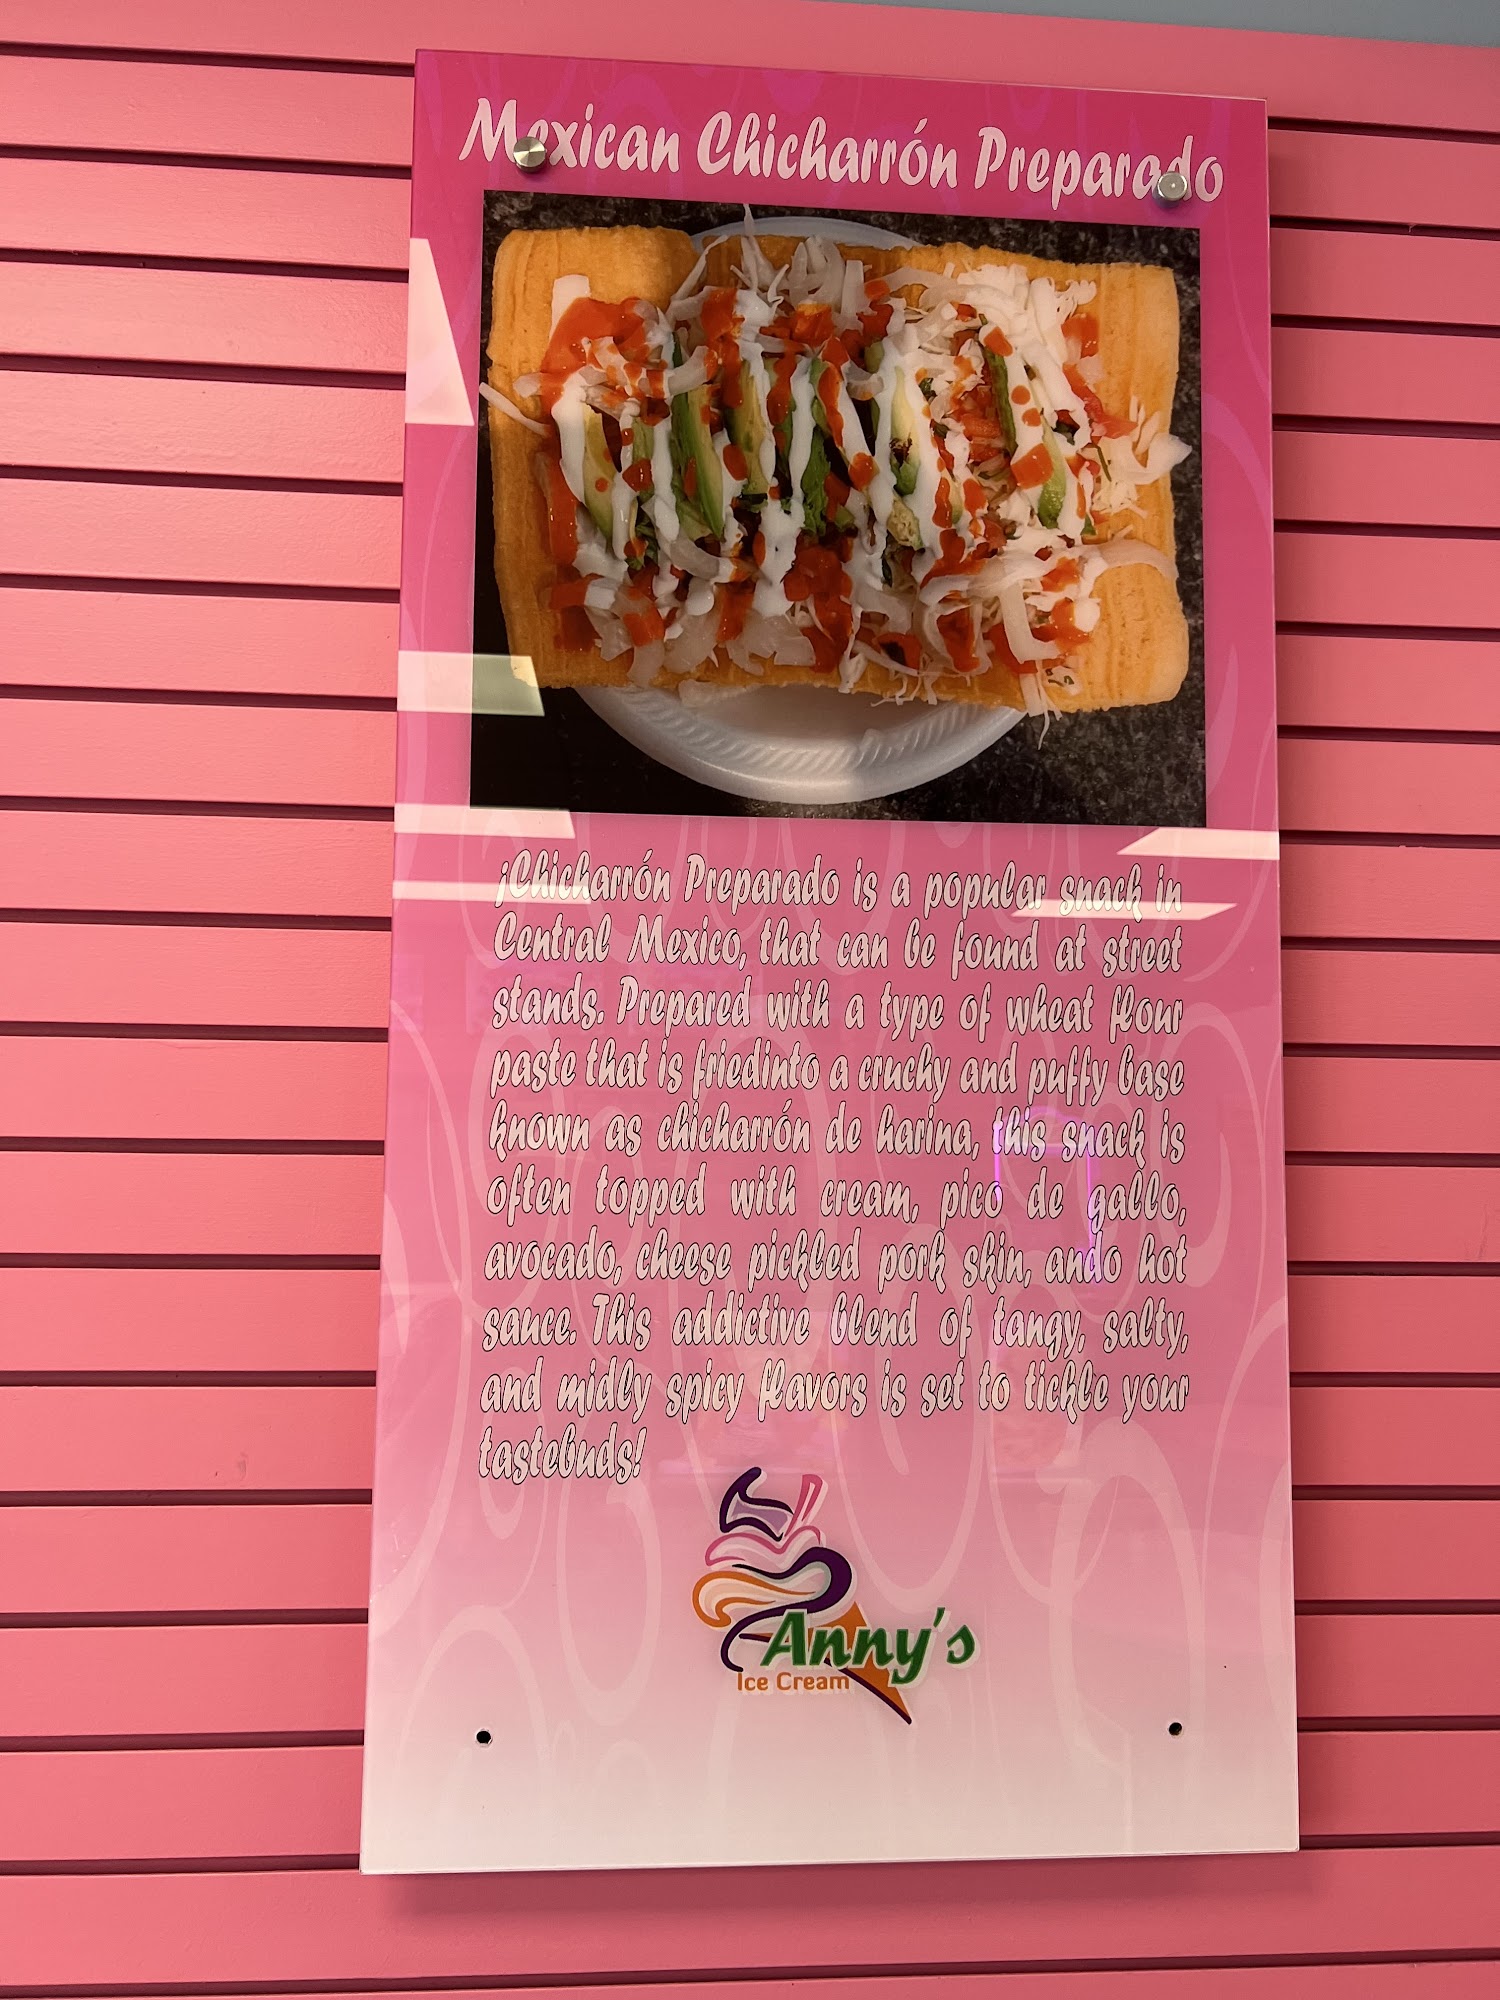 Mexican Chicharrón Preparado
¡Chicharrón Preparado is a popular snack in
Central Mexico, that can be found at street
stands. Prepared with a type of wheat flour
paste that is friedinto a cruchy and puffy base
known as chicharrón de harina, this snack is
often topped with cream, pico de gallo,
avocado, cheese pickled pork skin, ando hot
sauce. This addictive blend of tangy, salty,
and midly spicy flavors is set to tickle your
tastebuds!
Anny's
Ice Cream